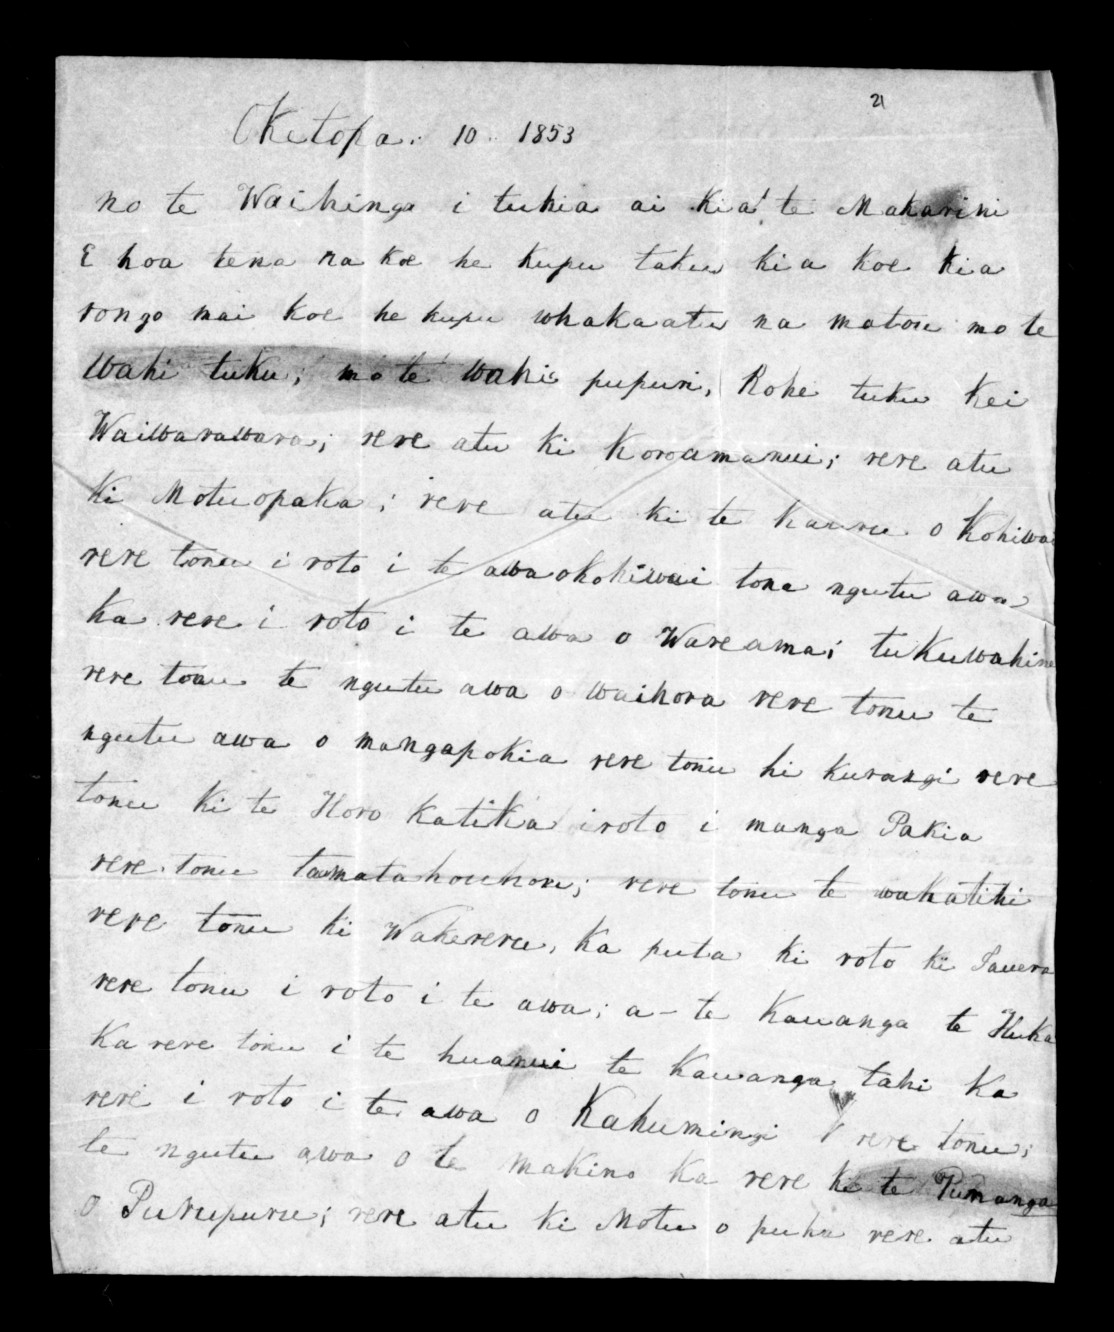 21
Oketopa. 10. 1853
no te Waihinga i tukia ai kia te Makarini
E hoa tena ra koe he kupu taku kia koe kia
rongo mai koe he kupu whakaatu na matou mo te
wahi tuku; mo te wahi pupuri, Rohe tuku kei
Waiwarawara; rere atu ki Koroamanui; rere atu
ki Motuopaka; rere atu ki te kauru o Kohiwai
rere tonu i roto i te awaokohiwai tona ngutu awa
ka rere i roto i te awa o Wareama; tukuwahine
rere tonu te ngutu awa o waihora rere tonu te
ngutu awa o mangapokia rere tonu ki kurangi rere
tonu ki te Horo katika iroto i manga Pakia
rere tonu tamatahouhoru; rere tonu te wakatiki
rere tonu ki Wakereru, ka puta ki roto ki Tauera
rere tonu i roto i te awa; a- te kauanga te Huka
ka rere tonu i te huanui te kauanga tahi ka
rere i roto i te awa o Kahumingi rere tonu;
te ngutu awa o te makino ka rere ki te Pumanga
o Purupuru; rere atu ki Motu o puha rere atu